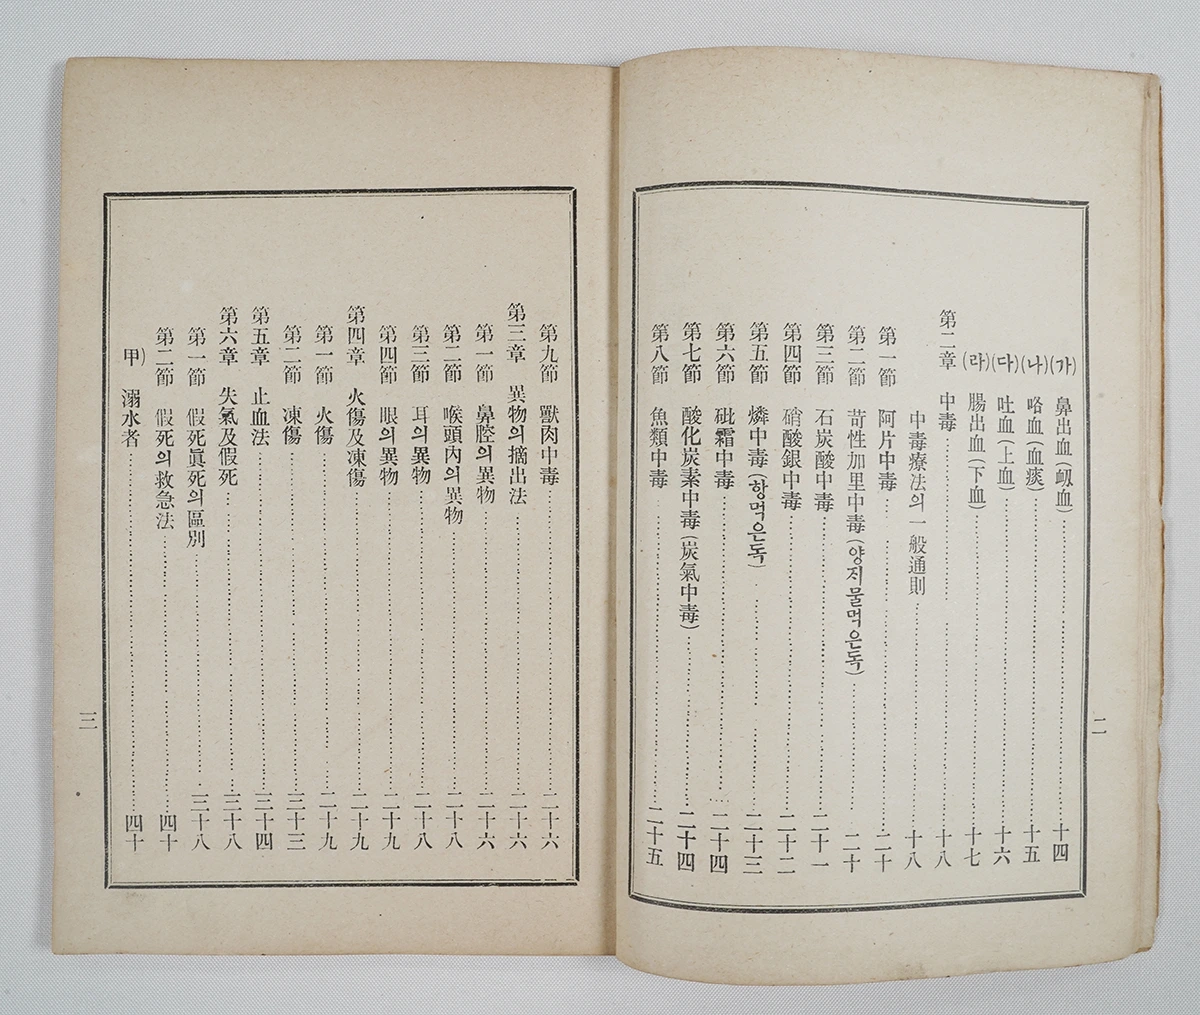 (가) 鼻出血(衂血)……十四
(나) 咯血(血痰)……十五
(다) 吐血(上血)……十六
(라) 腸出血(下血)……十七
第二章 中毒……十八
中毒療法의一般通則……十八
第一節 阿片中毒……二十
第二節 苛性加里中毒(양지물먹은독)……二十
第三節 石炭酸中毒……二十一
第四節 硝酸銀中毒……二十二
第五節 燐中毒(항먹은독)……二十三
第六節 砒霜中毒……二十四
第七節 酸化炭素中毒(炭氣中毒)……二十四
第八節 魚類中毒……二十五
二
第九節 獸肉中毒……二十六
第三章 異物의摘出法……二十六
第一節 鼻腔의異物……二十六
第二節 喉頭內의異物……二十八
第三節 耳의異物……二十八
第四節 眼의異物……二十九
第四章 火傷及凍傷……二十九
第一節 火傷……二十九
第二節 凍傷……三十三
第五章 止血法……三十四
第六章 失氣及假死……三十八
第一節 假死眞死의區別……三十八
第二節 假死의救急法……四十
甲) 溺水者……四十
三